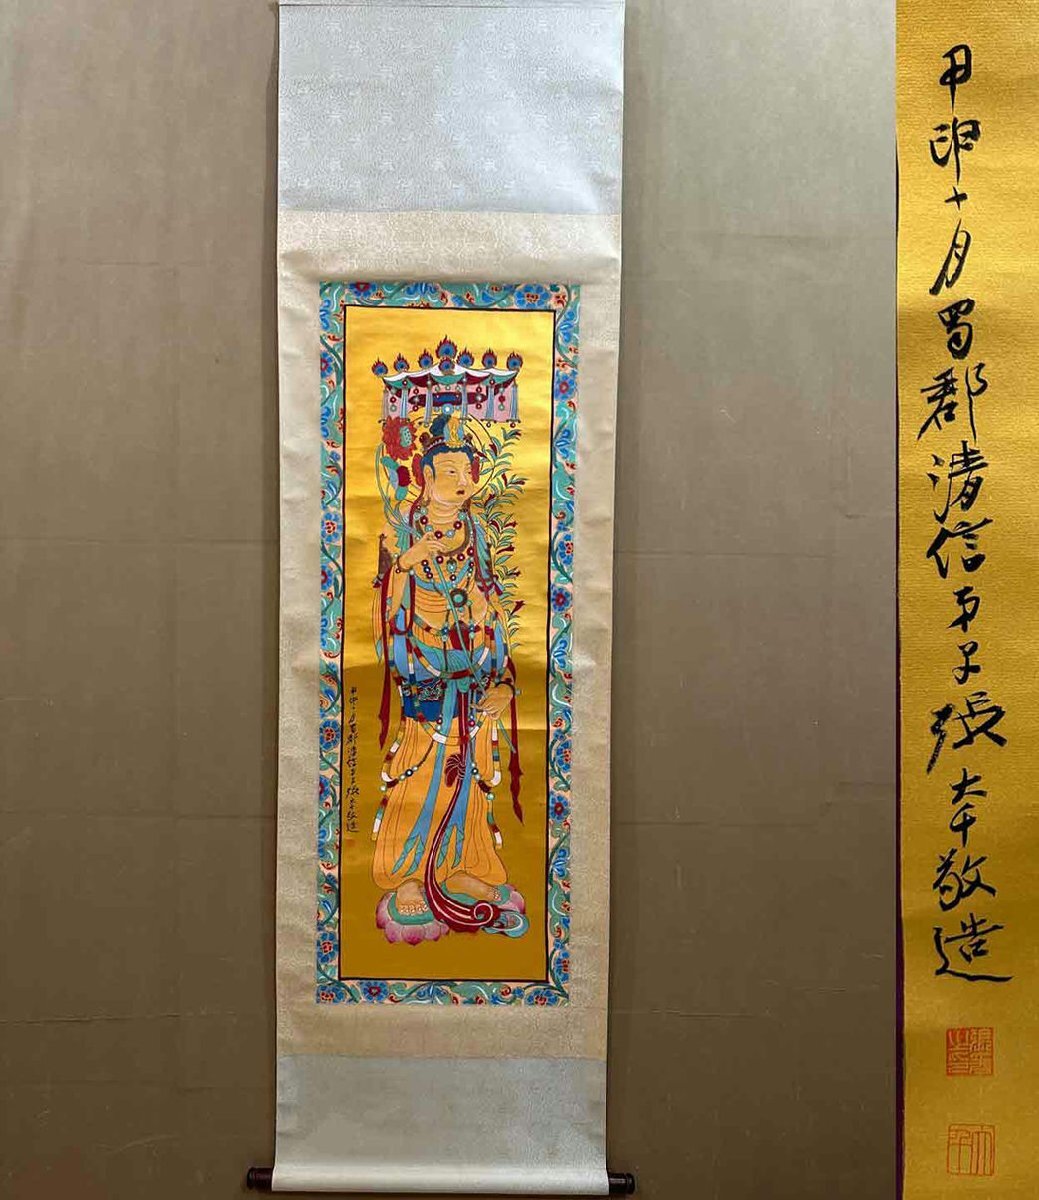 甲申十月蜀郡清信弟子張大千敬造
甲申十月蜀郡清信弟子張大千敬造
張爰之印
大千